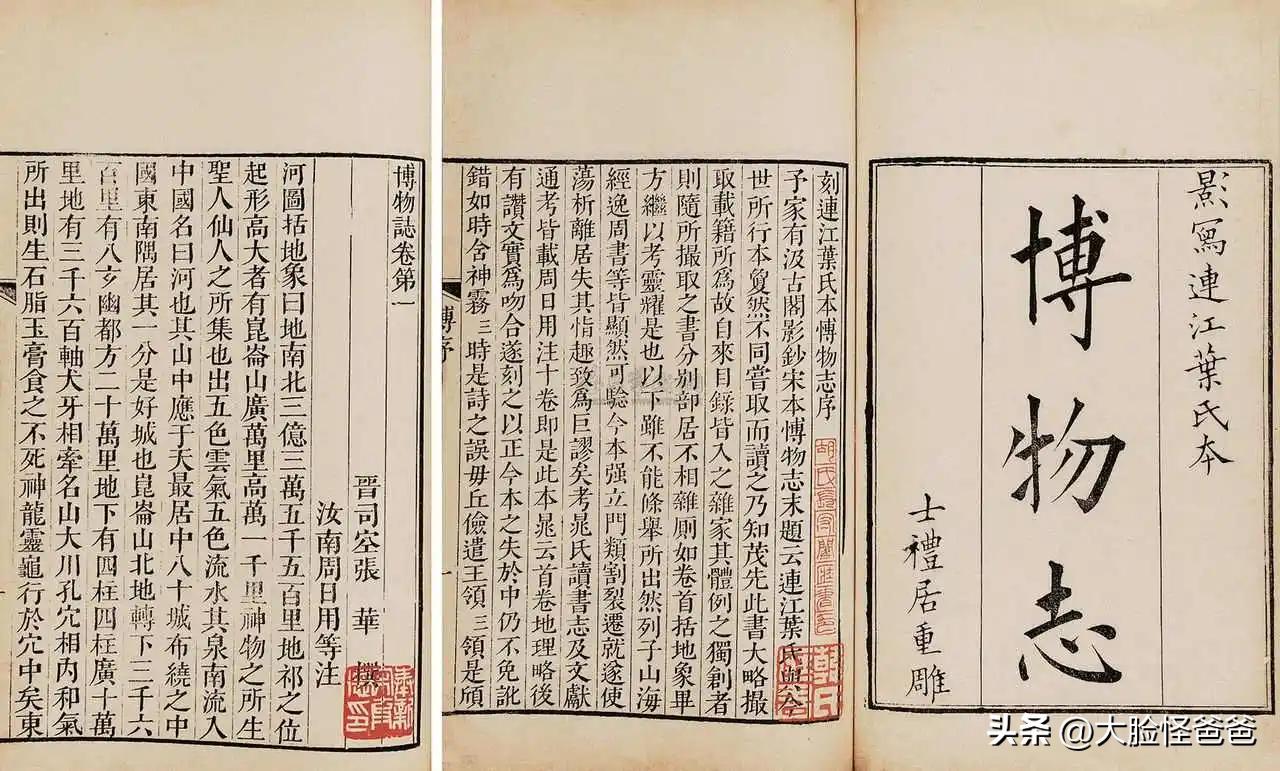 影寫連江葉氏本
博物志
士禮居重雕
刻連江葉氏本博物志序
予家有汲古閣影鈔宋本博物志末題云連江葉氏與今
世所行本夐然不同嘗取而讀之乃知茂先此書大略撮
取載籍所爲故自來目錄皆入之雜家其體例之獨創者
則隨所撮取之書分別部居不相雜厠如卷首括地象畢
方繼以考靈耀是也以下雖不能條舉所出然列子山海
經逸周書等皆顯然可驗今本强立門類割裂遷就遂使
蕩析離居失其恉趣致爲巨謬矣考晁氏讀書志及文獻
通考皆載周日用注十卷即是此本晁云首卷地理略後
有讚文實爲吻合遂刻之以正今本之失於中仍不免訛
錯如時舍神霧三時是詩之誤毋丘儉遣王領三領是頎
博序
博物誌卷第一
晉司空張華撰
汝南周日用等注
河圖括地象曰地南北三億三萬五千五百里地祁之位
起形高大者有崑崙山廣萬里高萬一千里神物之所生
聖人仙人之所集也出五色雲氣五色流水其泉南流入
中國名曰河也其山中應于天最居中八十城布繞之中
國東南隅居其一分是好城也崑崙山北地轉下三千六
百里有八玄幽都方二十萬里地下有四柱四柱廣十萬
里地有三千六百軸犬牙相牽名山大川孔穴相内和氣
所出則生石脂玉膏食之不死神龍靈龜行於穴中矣東
头条 @大脸怪爸爸